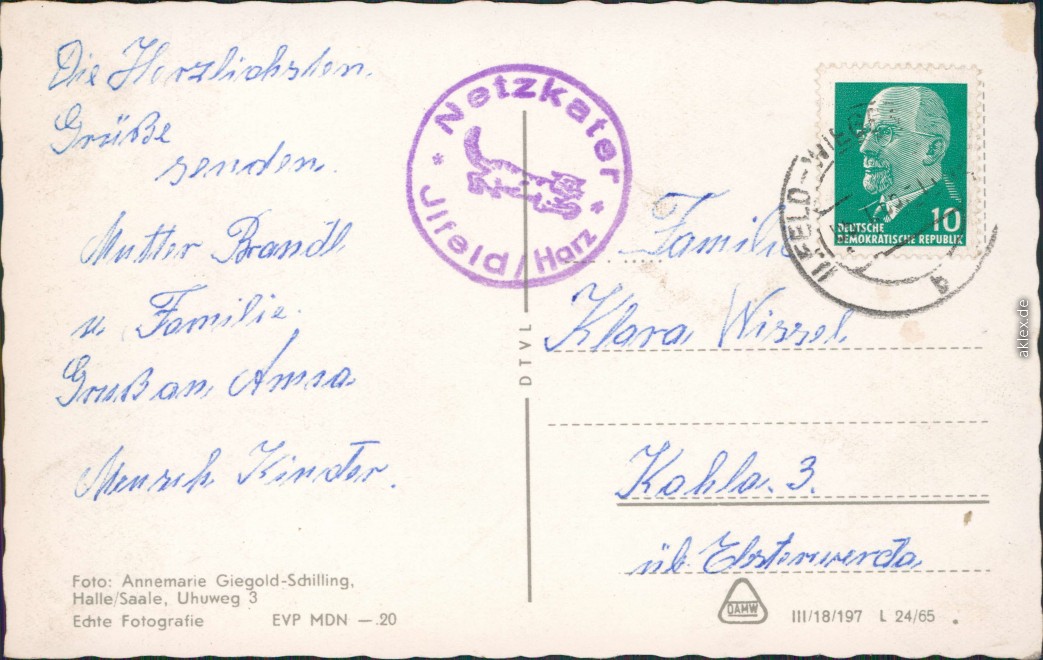 Die Herzlichsten
Grüße
senden.
Mutter Brandl
u. Familie.
Gruß an Anna
Mensch Kinder.
Foto: Annemarie Giegold-Schilling,
Halle/Saale, Uhuweg 3
Echte Fotografie EVP MDN —.20
Netzkater
Jlfeld/Harz
DTVL
ILFELD-WIEG
b
10
DEUTSCHE
DEMOKRATISCHE REPUBLIK
Familie
Klara Wissel
Kahla. 3.
üb. Elsterwerda
DAMW
III/18/197 L 24/65
aklex.de